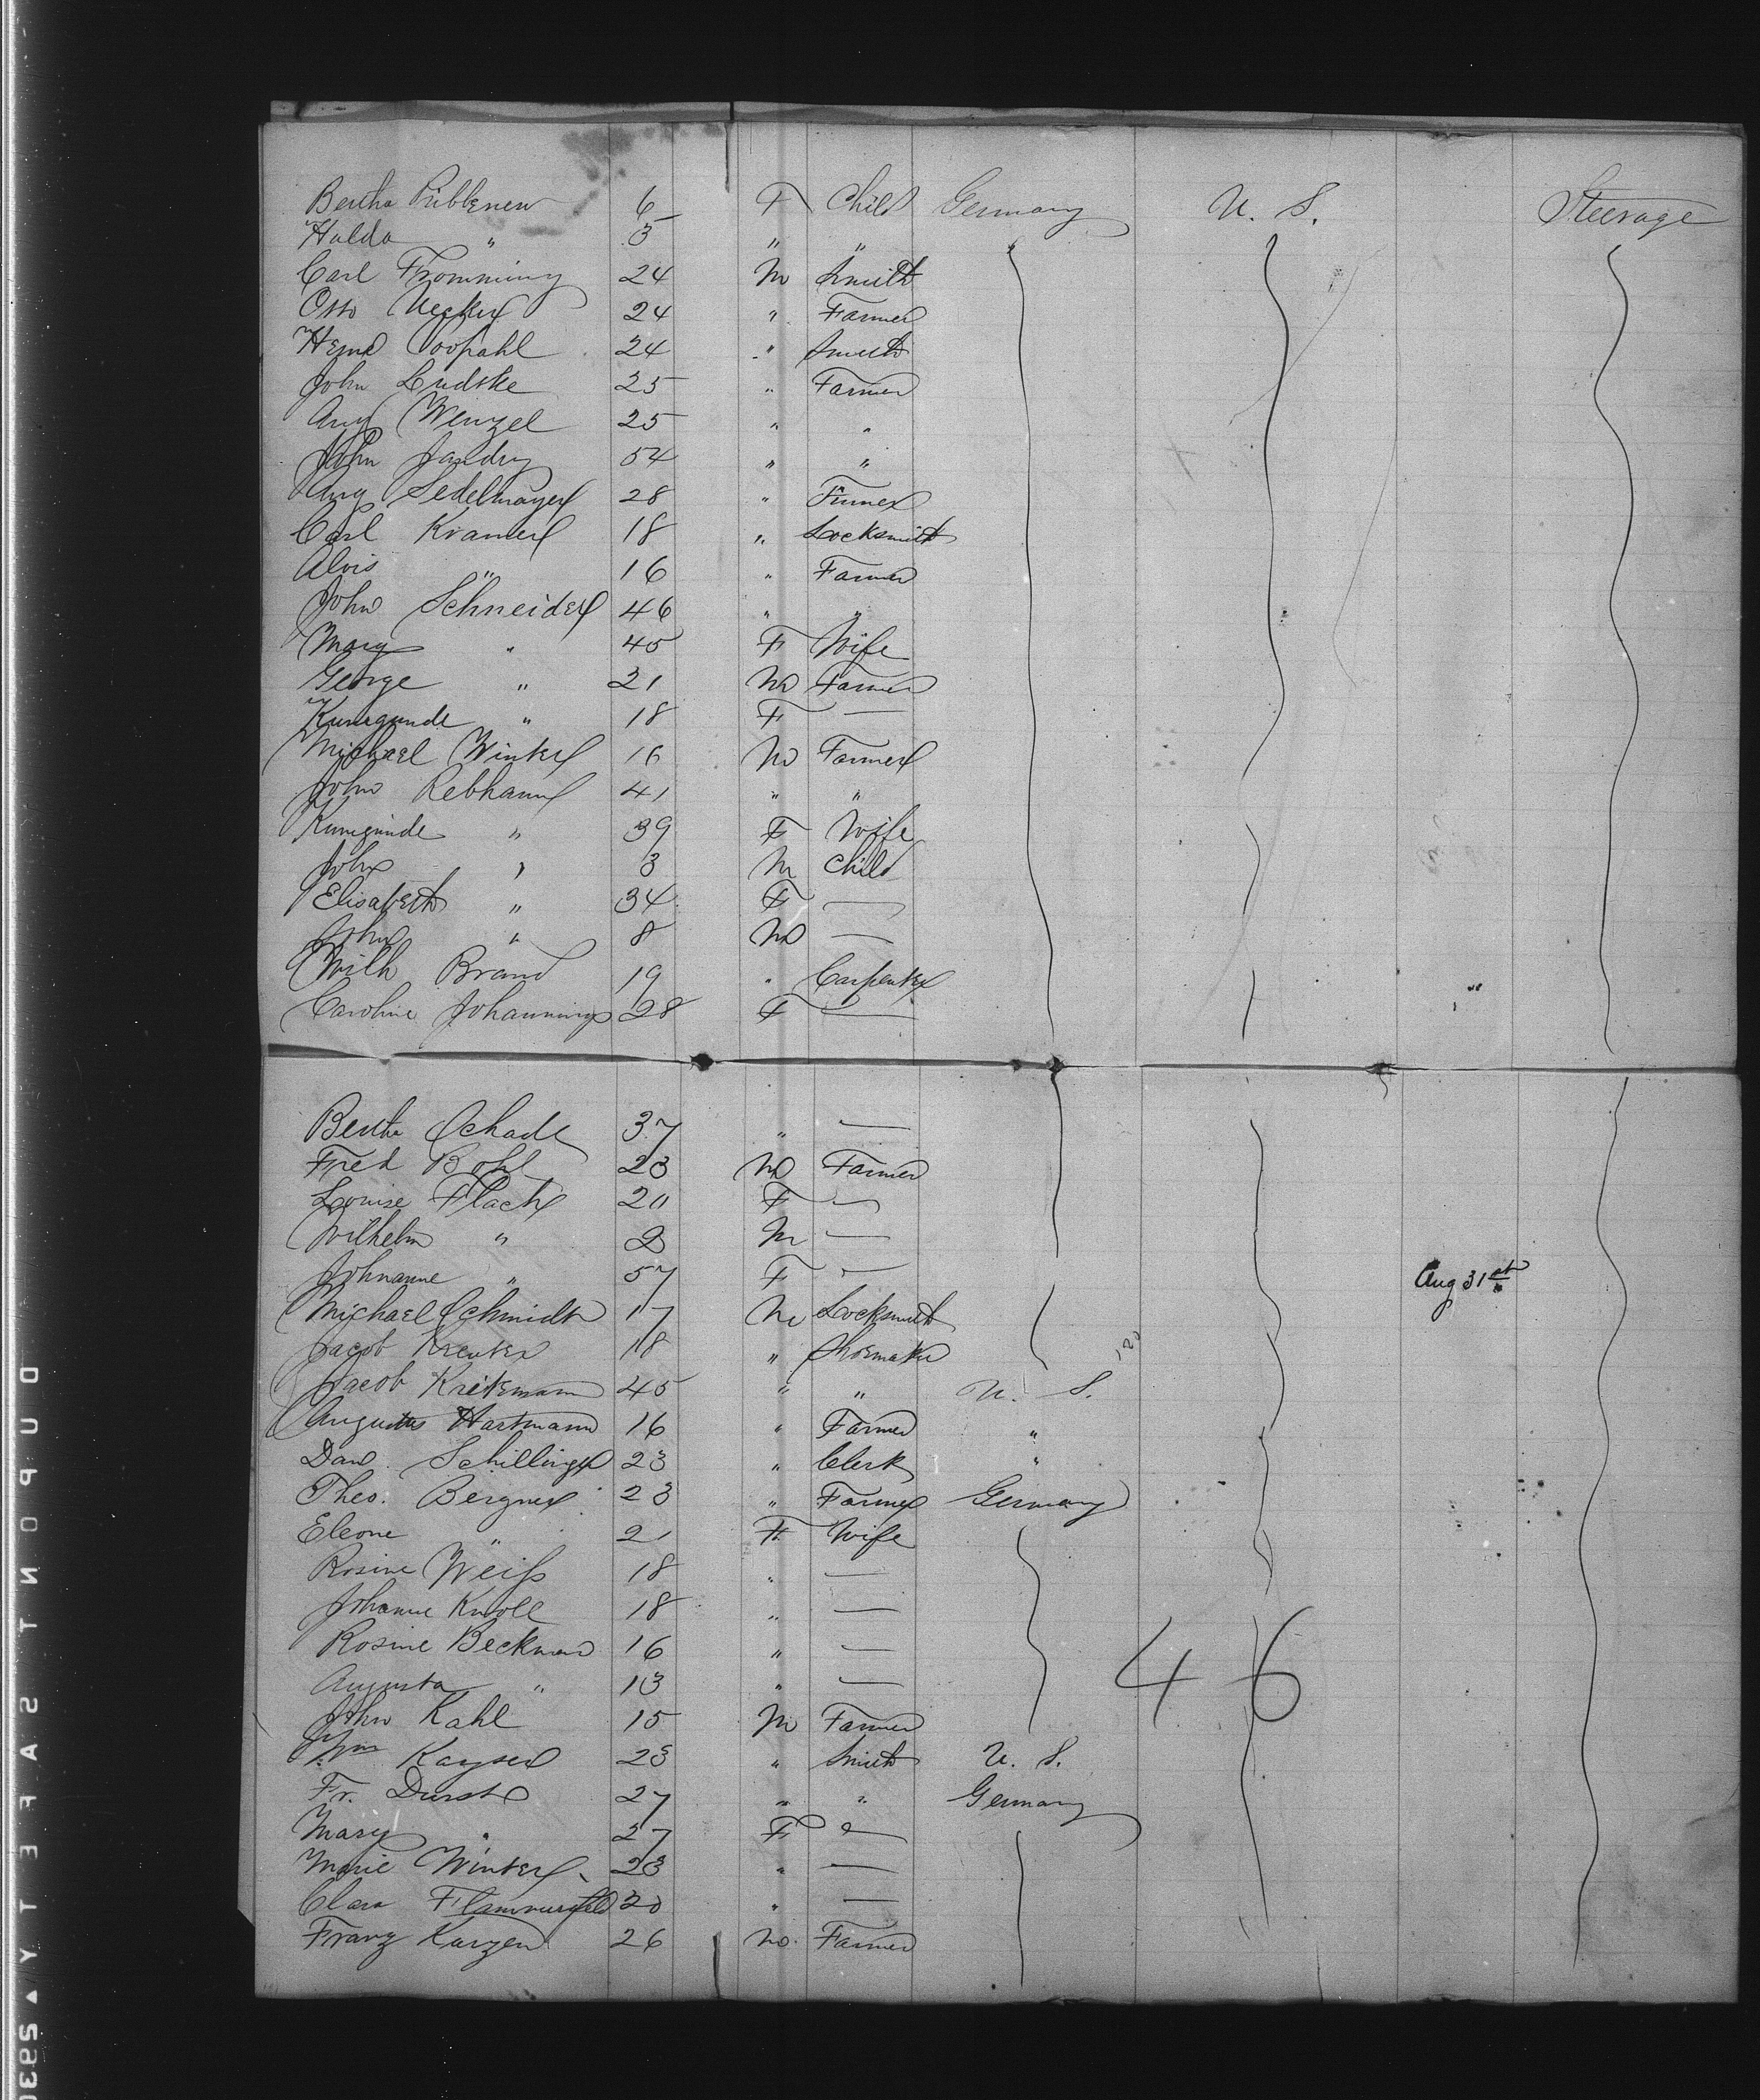 Bertha Pribbenow 6 F Child Germany U. S. Steerage
Hulda " 5 " "
Carl Fromming 24 M Smith
Otto Uecker 24 " Farmer
Herm Voopahl 24 " Smith
John Ludske 25 " Farmer
Aug Wenzel 25 " "
John Jandry 54 " "
Aug Sedelmayer 28 "
Carl Kramer 18 " Locksmith
Alois " 16 " Farmer
John Schneider 46 " "
Mary " 45 F Wife
George " 21 M Farmer
Kunegunde " 18 F —
Michael Winter 16 M Farmer
John Rebhann 41 " "
Kunegunde " 39 F Wife
John " 3 M Child
Elisabeth " 34 F —
John " 8 M —
Wilh Brand 19 " Carpenter
Caroline Johannings 28 F —
Bertha Schade 37 " —
Fred Bohl 23 M Farmer
Louise Flach 20 F —
Wilhelm " 2 M —
Johanne " 57 F — Aug 31st
Michael Schmidt 17 M Locksmith
Jacob Kreuter 18 " Shoemaker
Jacob Kreitzmann 45 " " U. S.
Augustus Hartmann 16 " Farmer "
Dan. Schillinger 23 " Clerk "
Theo. Bergner 23 " Farmer Germany
Eleone " 21 F Wife
Rosine Weiß 18 " —
Johanne Knoll 18 " —
Rosine Beckman 16 " —
Augusta " 13 " — 46
John Kahl 15 M Farmer
Wm Kayser 23 " Smith U. S.
Fr. Durst 27 " " Germany
Mary " 27 F —
Marie Winter 23 " —
Clara 20 " —
Franz Kurzen 26 M. Farmer
DUPONT SAFETY